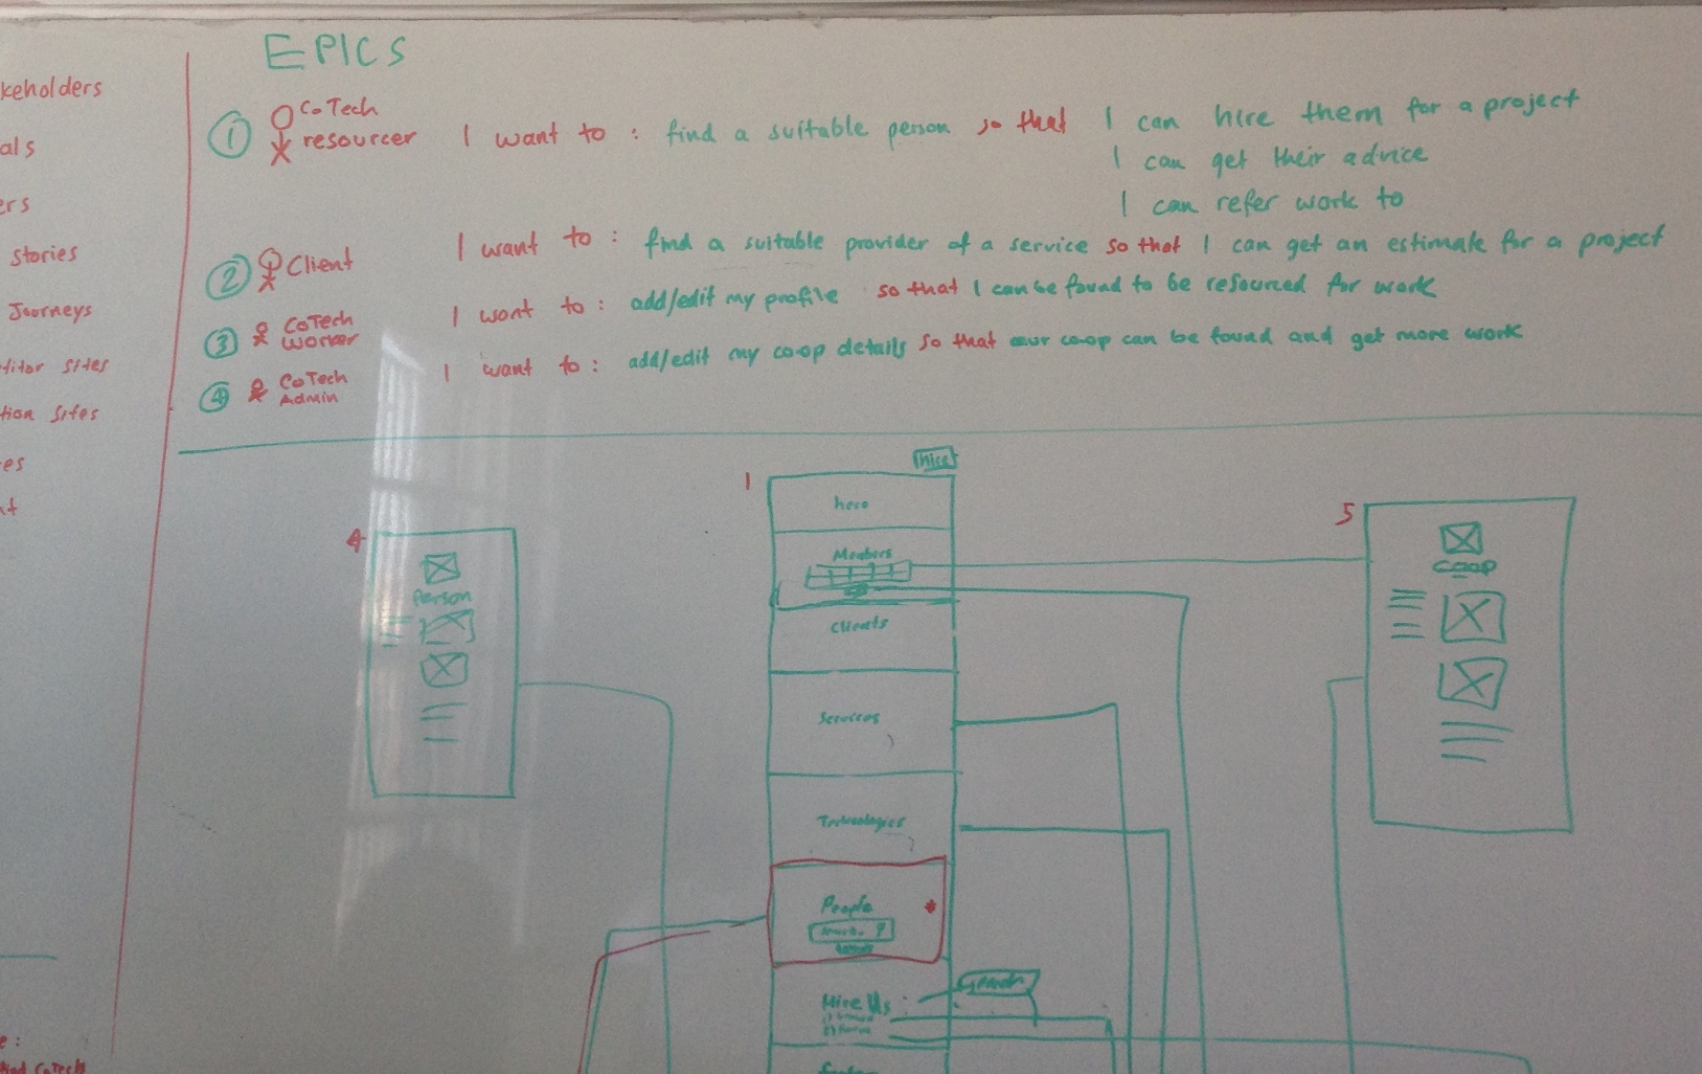 EPICS
keholders
als
ers
stories
Journeys
ditor sites
tion sites
es
nt
1 CoTech resourcer I want to: find a suitable person so that I can hire them for a project
I can get their advice
I can refer work to
2 Client I want to: find a suitable provider of a service so that I can get an estimate for a project
3 CoTech Worker I want to: add/edit my profile so that I can be found to be resourced for work
4 CoTech Admin I want to: add/edit my coop details so that our coop can be found and get more work
hire
1
hero
Members
Clients
Services
Technologies
People
Hire Us
4
Person
5
coop
e:
find CoTech